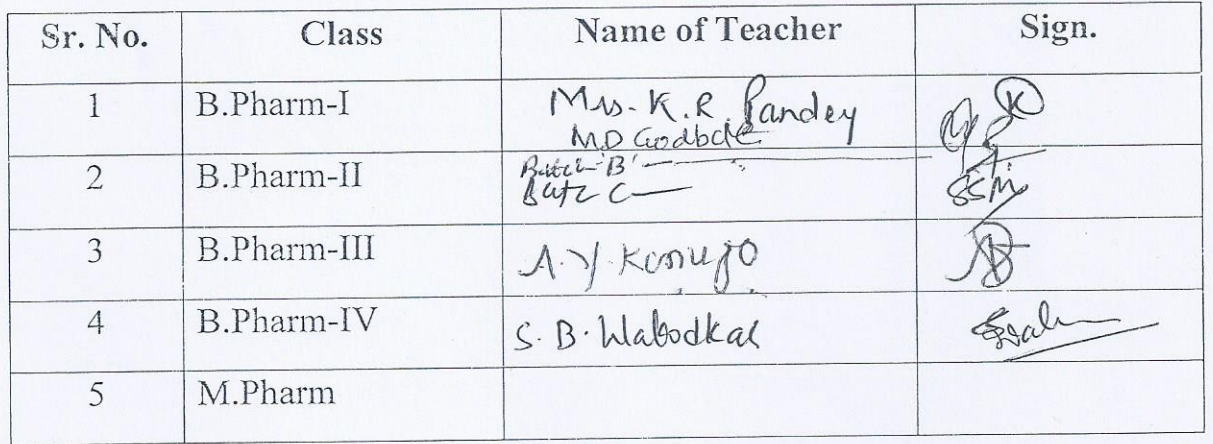 Sr. No. Class Name of Teacher Sign.
1 B.Pharm-I Mrs. K.R. Pandey
M.D Godbole
2 B.Pharm-II Batch 'B' —
Batc C —
SSM
3 B.Pharm-III A.Y.
4 B.Pharm-IV S.B. Wabodkar
5 M.Pharm